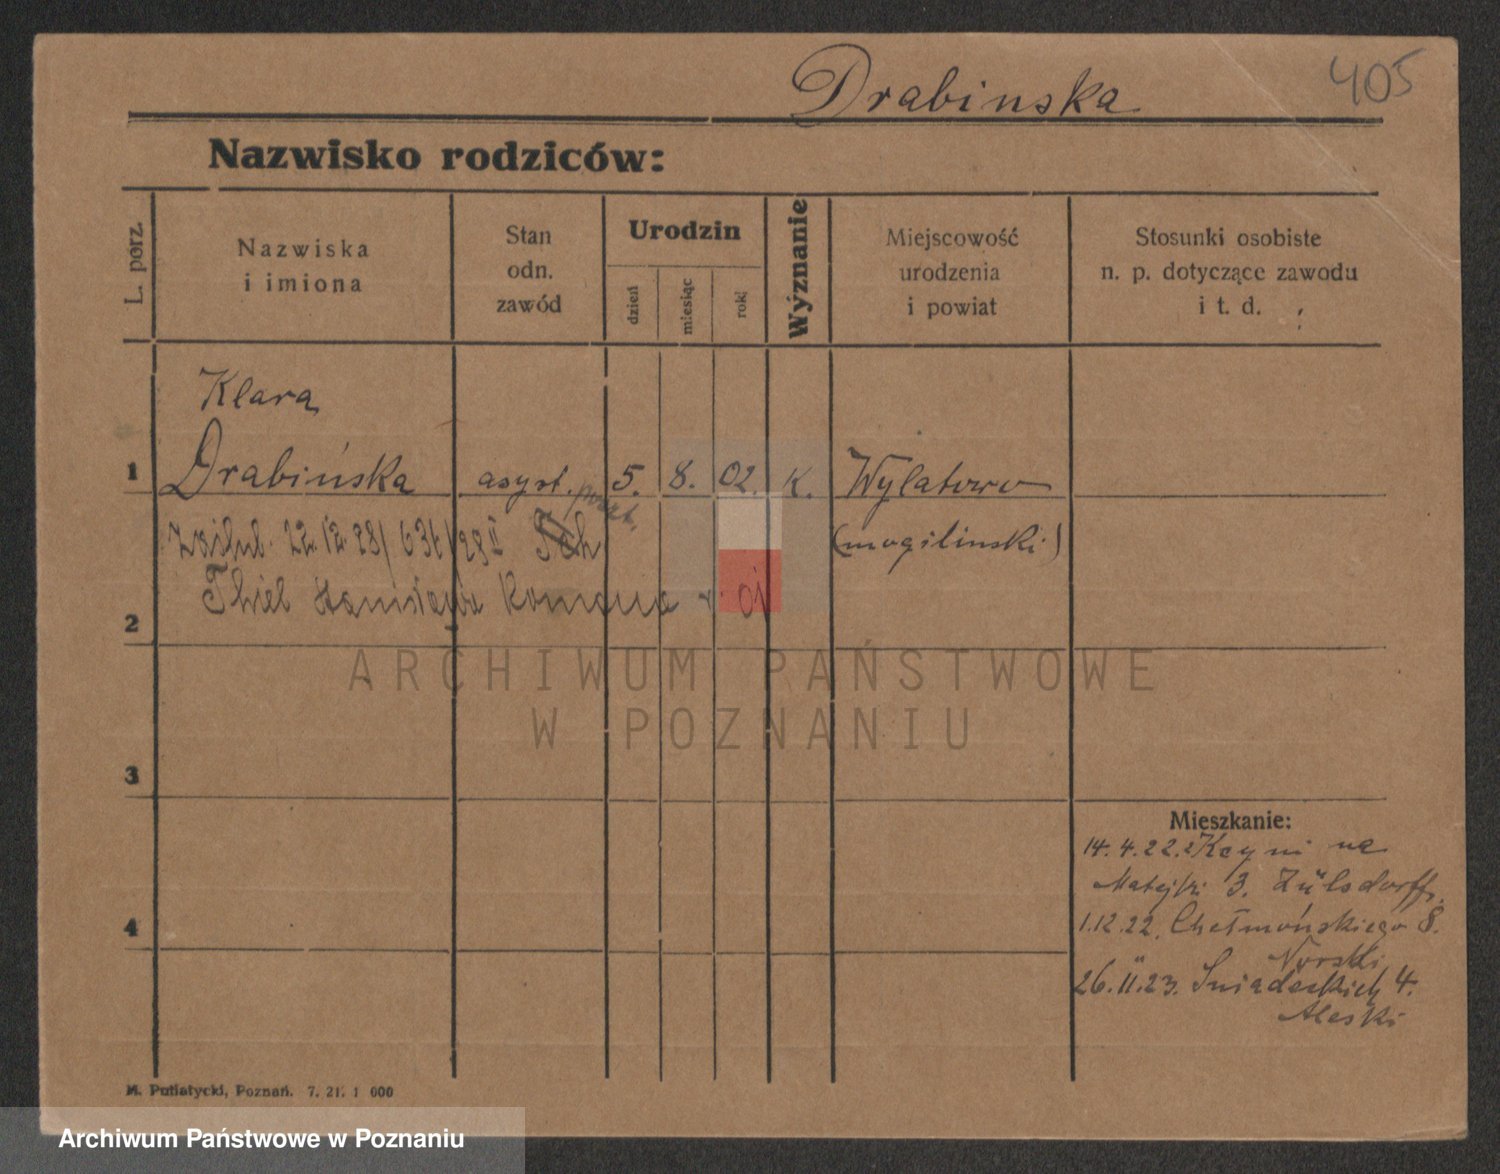 Drabinska 405
Nazwisko rodziców:
L. porz.
Nazwiska
i imiona
Stan
odn.
zawód
Urodzin
dzień
miesiąc
rok
Wyznanie
Miejscowość
urodzenia
i powiat
Stosunki osobiste
n. p. dotyczące zawodu
i t. d.
Klara
1 Drabińska asyst. 5. 8. 02. K. Wylatowo
22.12.28 (mogilinski)
2 Thiel
3
4
Mieszkanie:
14.4.22. Kcyni
Matejki 3. Zülsdorff
1.12.22. Chełmońskiego 8.
Norski
26.II.23. Śniadeckich 4.
Aleski
M. Putiatycki, Poznań. 7. 21. 1 000
ARCHIWUM PAŃSTWOWE
W POZNANIU
Archiwum Państwowe w Poznaniu